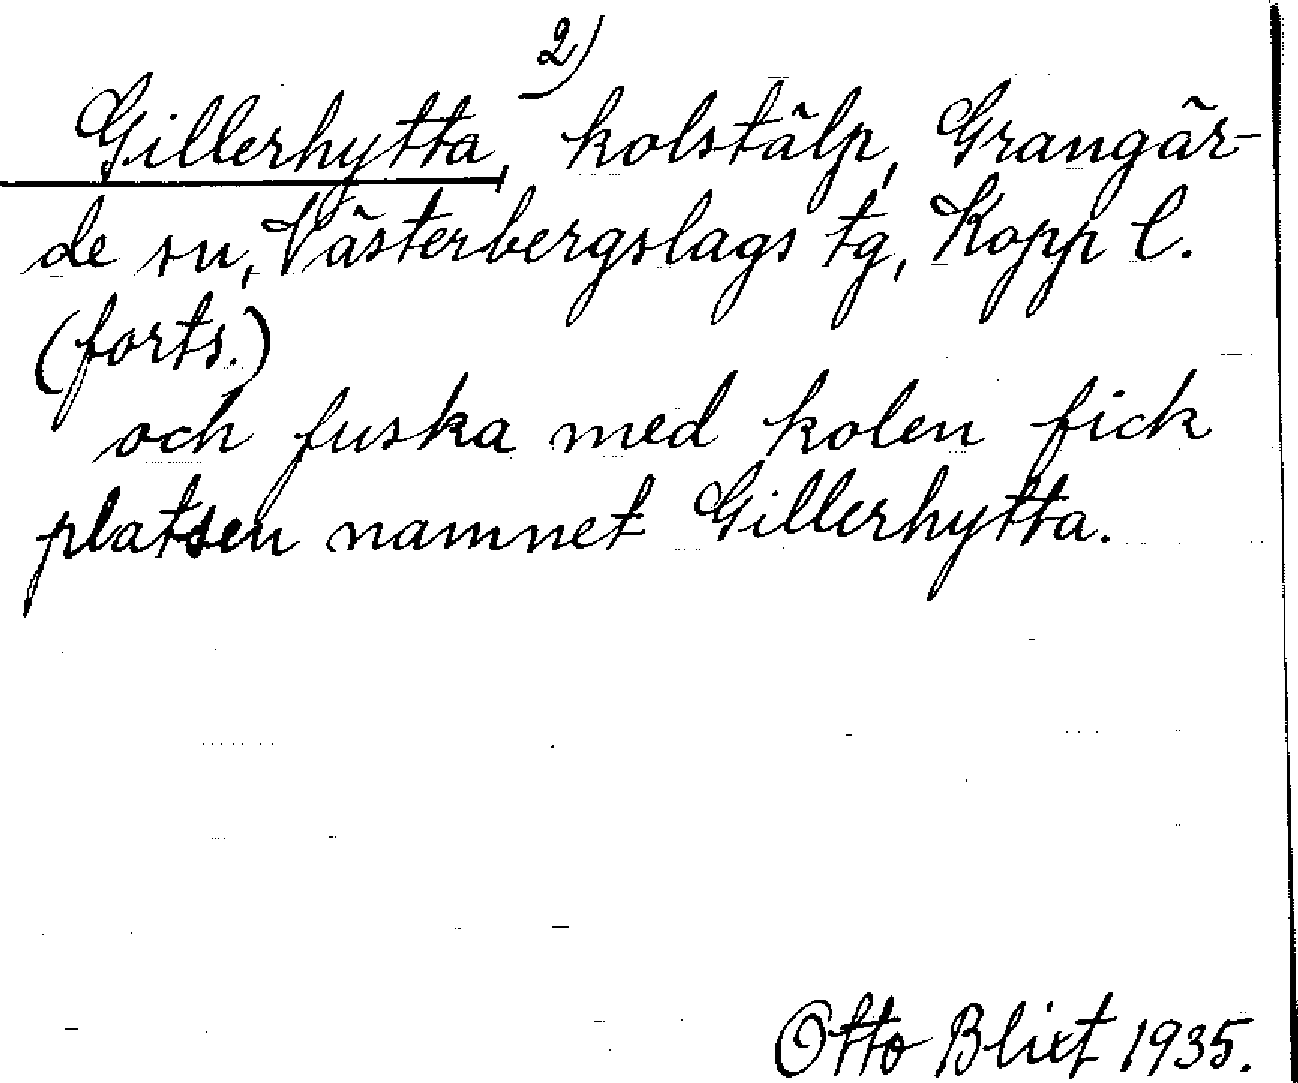 2)
Gillerhytta, kolstälp, Grangär-
de sn, Västerbergslags tg, Kopp l.
(forts.)
och fuska med kolen fick
platsen namnet Gillerhytta.
Otto Blixt 1935.